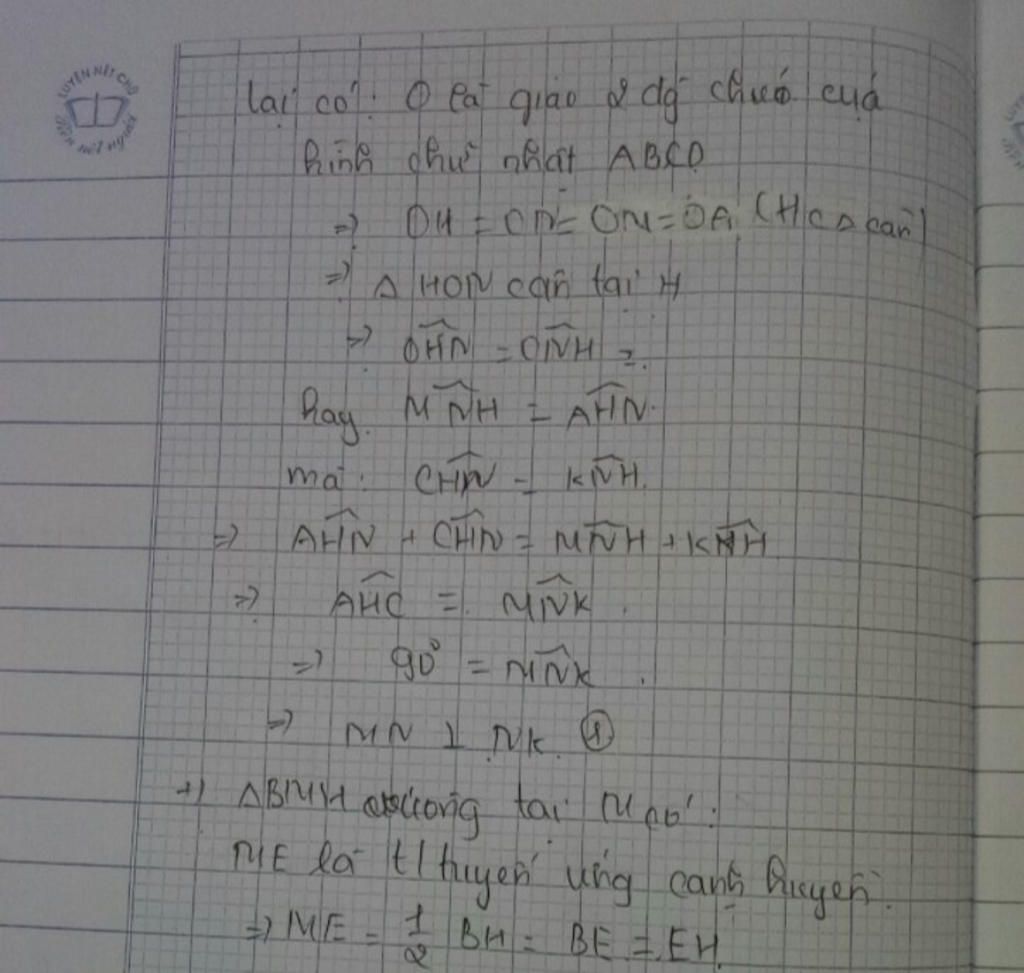 LUYỆN NÉT CHỮ
Lại có: O là giao 2 dg chéo của
hình chữ nhật ABCD
=> OH = ON = OM = OA (HC △ cân)
=> △ HON cân tại H
=> OHN = ONH =.
Hay. MNH = AHN.
mà: CHN = KNH.
=> AHN + CHN = MNH + KNH
=> AHC = MNK.
=> 90° = MNK.
=> MN ⊥ NK. ①
+) △BMH vuông tại M có:
ME là t/tuyến ứng cạnh huyền.
=> ME = 1/2 BH = BE = EH.